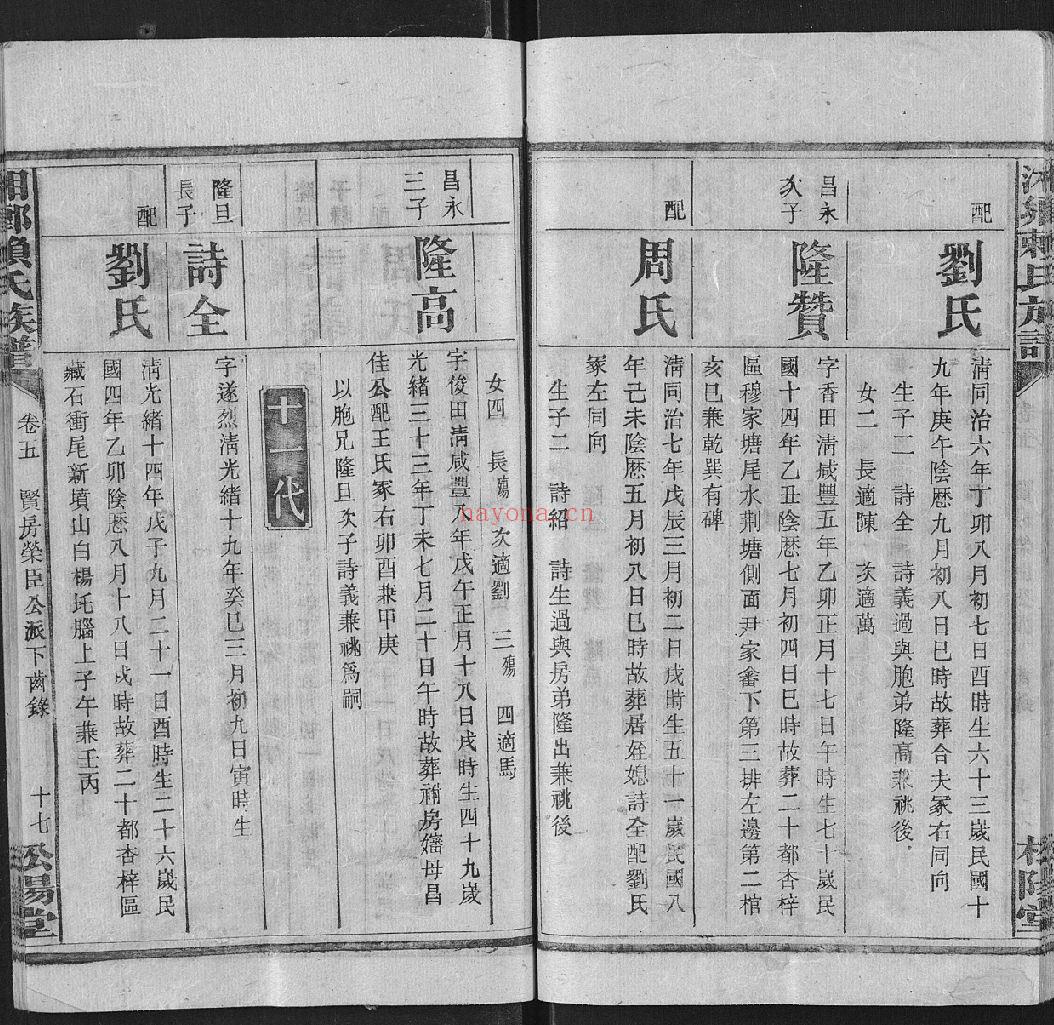 配
劉氏
清同治六年丁卯八月初七日酉時生六十三歲民國十
九年庚午陰歷九月初八日巳時故葬合夫冢右同向
生子二 詩全 詩義過與胞弟隆高兼祧後
女二 長適陳 次適萬
昌永
次子
隆贊
字香田清咸豐五年乙卯正月十七日午時生七十歲民
國十四年乙丑陰歷七月初四日巳時故葬二十都杏梓
區穆家塘尾水荆塘側面尹家畬下第三排左邊第二棺
亥巳兼乾巽有碑
配
周氏
清同治七年戊辰三月初二日戌時生五十一歲民國八
年己未陰歷五月初八日巳時故葬居姪媳詩全配劉氏
冢左同向
生子二 詩紹 詩生過與房弟隆出兼祧後
女四 長殤 次適劉 三殤 四適馬
昌永
三子
隆高
字俊田清咸豐八年戊午正月十八日戌時生四十九歲
光緒三十三年丁未七月二十日午時故葬補房嬸母昌
佳公配王氏冢右卯酉兼甲庚
以胞兄隆旦次子詩義兼祧爲嗣
十一代
隆旦
長子
詩全
字遂烈清光緒十九年癸巳三月初九日寅時生
配
劉氏
清光緒十四年戊子九月二十一日酉時生二十六歲民
國四年乙卯陰歷八月十八日戌時故葬二十都杏梓區
藏石衝尾新墳山白楊坨腦上子午兼壬丙
氏族譜
卷五
賢房榮臣公派下齒錄
十七
松陽堂
nayona.cn